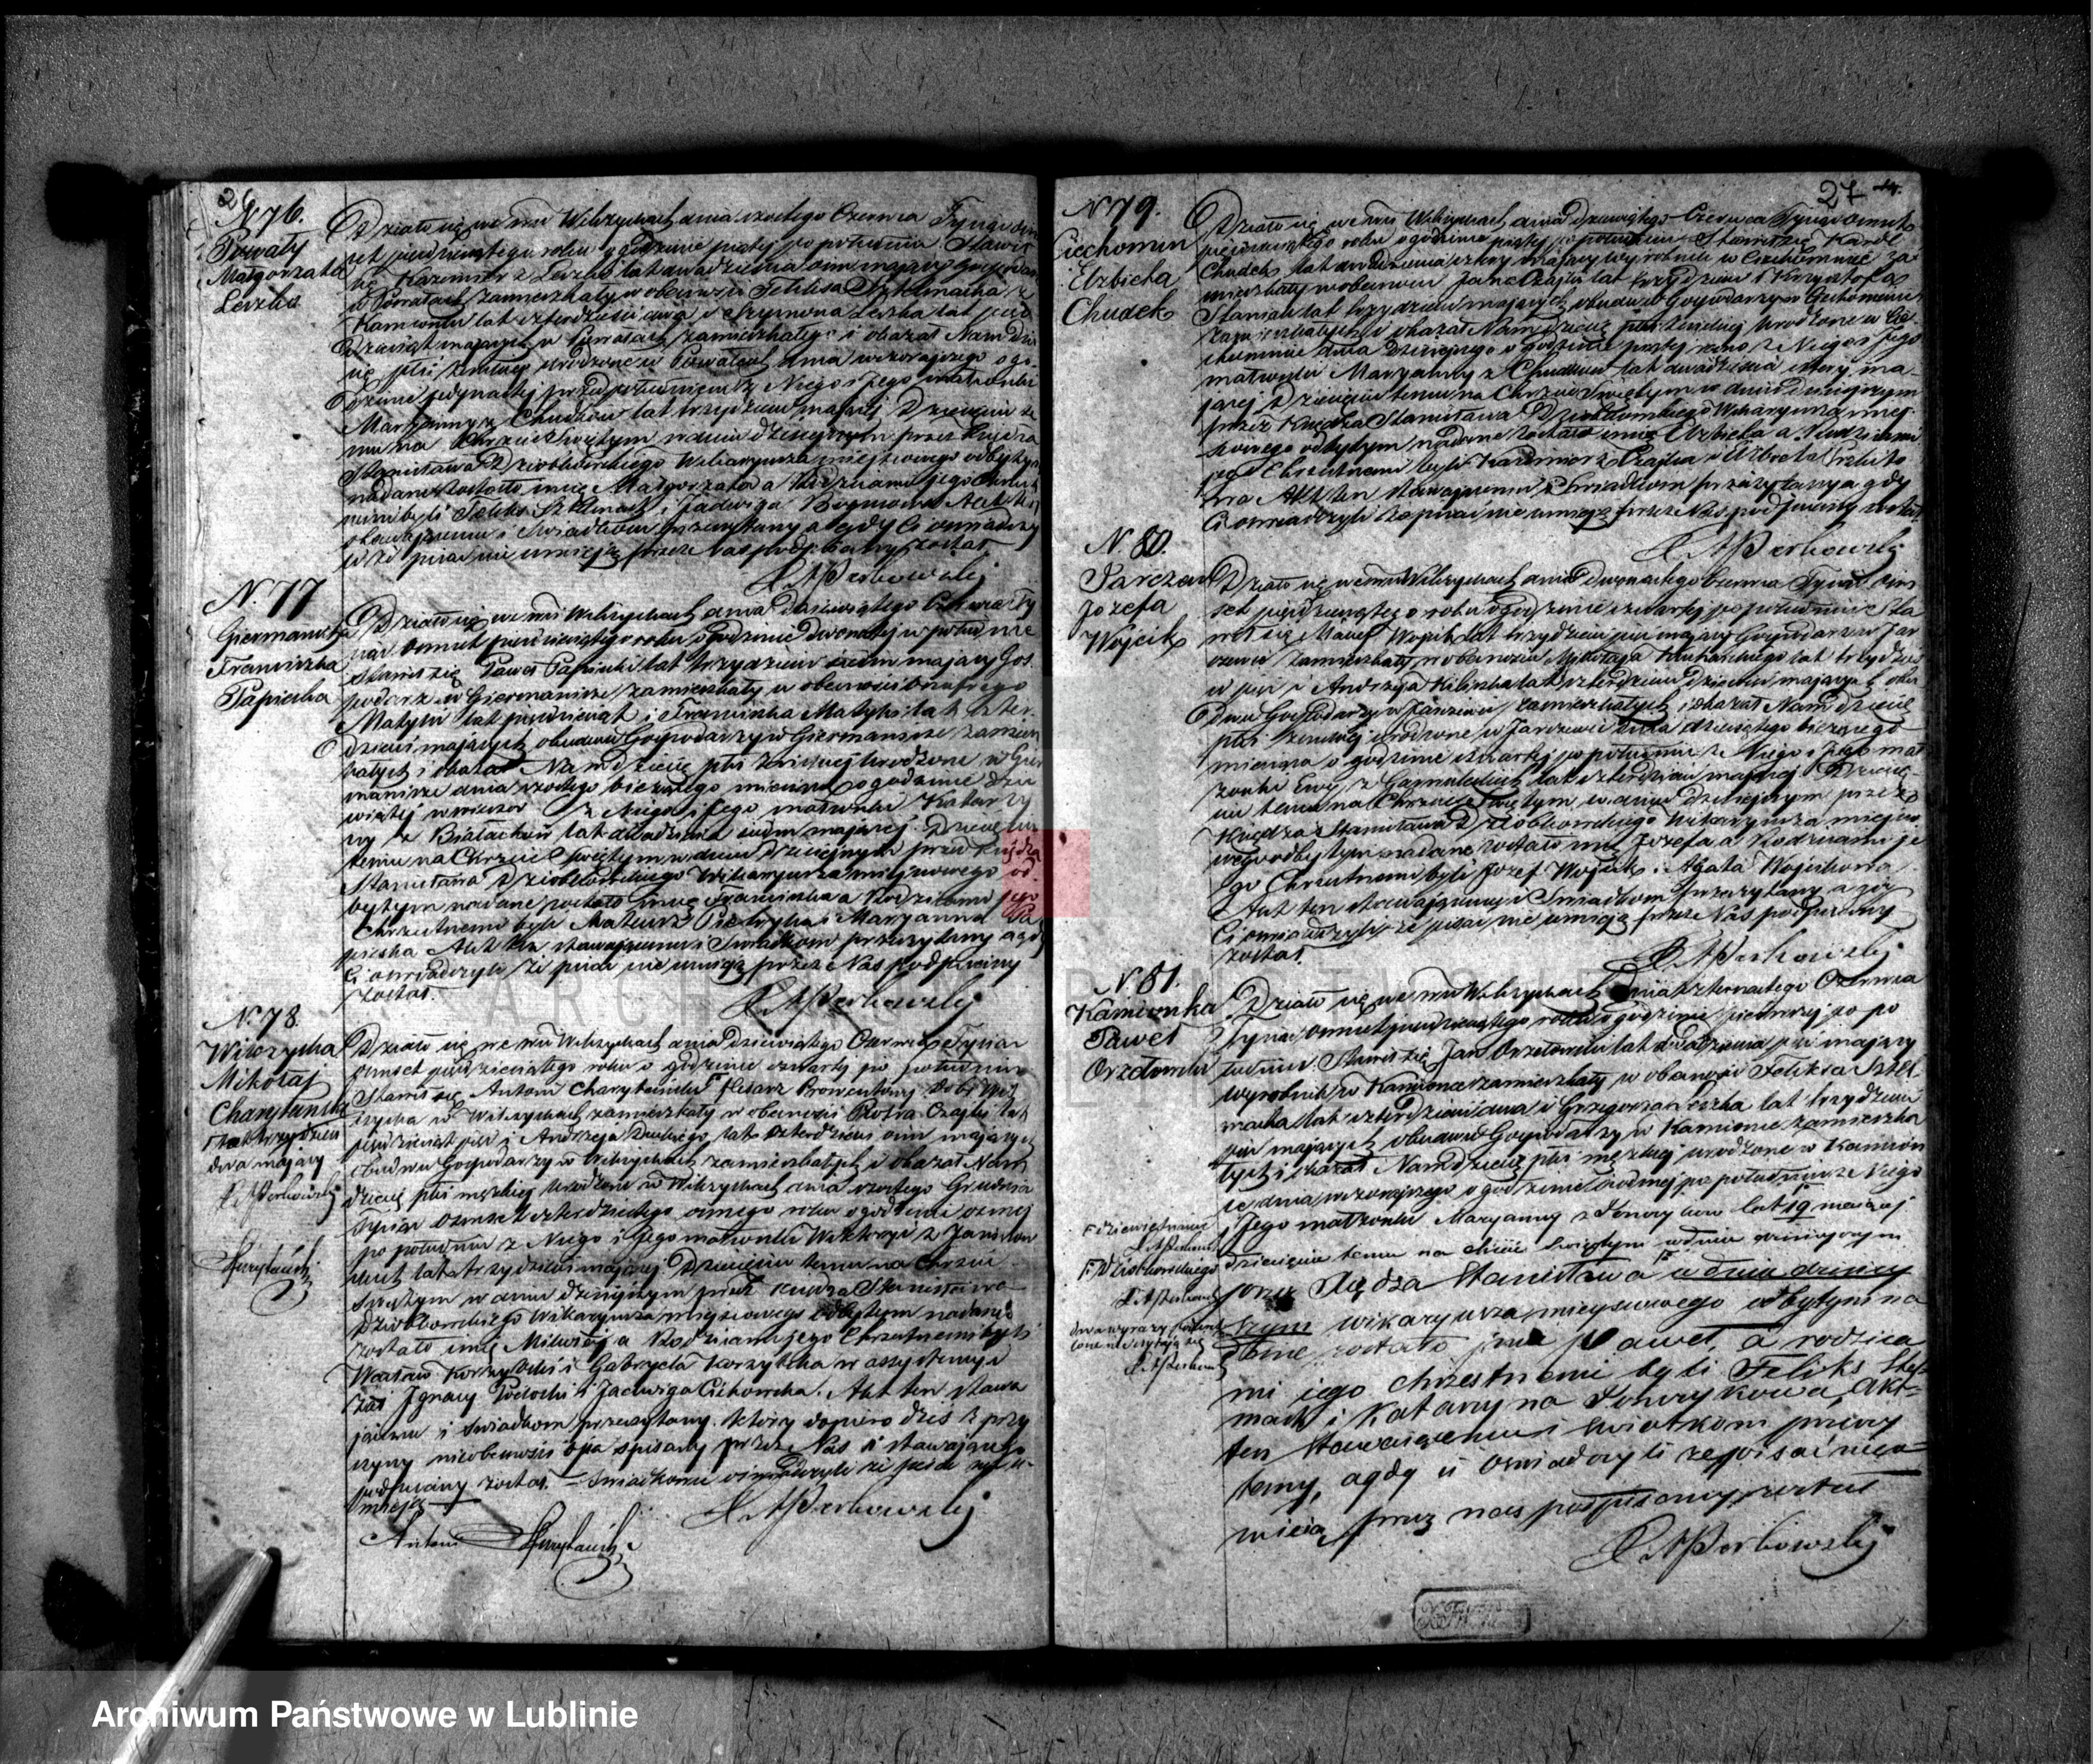 26
N. 76.
Powały
Małgorzata
Leszko
Działo się we wsi Wilczyskach dnia szóstego Czerwca Tysiąc ośm
set pięćdziesiątego roku o godzinie piątej po południu. Stawił
się Kazimierz Leszko lat dwadzieścia ośm mający Gospodarz
w Powałach zamieszkały w obecności Feliksa Szklmacha z
Kamionki lat czterdzieści dwa i Szymona Leszka lat pięć
dziesiąt mających w Powałach zamieszkałego i okazał Nam Dzie
cię płci żeńskiej urodzone w Powałach dnia wczorajszego o go
dzinie jedynastej przed południem z Niego i jego małżonki
Maryanny z Chudków lat trzydzieści mającej Dziecięciu te
mu na Chrzcie Świętym w dniu dzisiejszym przez Księdza
Stanisława Dziobkowskiego Wikaryusza miejscowego odbytym
nadane zostało imię Małgorzata a Rodzicami jego Chrzest
nemi byli Feliks Szklmach i Jadwiga Akt ten
stawającemu i Świadkom przeczytany a gdy Ci oświadczy
li że pisać nie umieją przez Nas podpisany został.
N. 77
Giermanicha
Franciszka
Papieska
Działo się we wsi Wilczyskach dnia dziewiątego Czerwca Ty
siąc ośmset pięćdziesiątego roku o godzinie dwunastej w południe
Stawił się Paweł Papieski lat trzydzieści siedm mający Gos
podarz w Giermanisze zamieszkały w obecności Onufrego
Matysa lat pięćdziesiąt i Franciszka Matysa lat czter
dzieści mających obudwu Gospodarzy w Giermanisze zamiesz
kałych i okazał Nam dziecię płci żeńskiej urodzone w Gier
manisze dnia szóstego bieżącego miesiąca o godzinie dzie
wiątej wieczór z Niego i jego małżonki Katarzy
ny z Białachów lat dwadzieścia siedm mającej. Dziecięciu
temu na Chrzcie Świętym w dniu dzisiejszym przez Księdza
Stanisława Dziobkowskiego Wikaryusza miejscowego od
bytym nadane zostało imię Franciszka a Rodzicami jego
Chrzestnemi byli Mateusz Pietryka i Maryanna Pa
pieska Akt ten stawającemu i Świadkom przeczytany a gdy
Ci oświadczyli że pisać nie umieją przez Nas podpisany
został.
N. 78.
Wilczyska
Mikołaj
Charytański
lat trzydzieści
dwa mający
Działo się we wsi Wilczyskach dnia dziewiątego Czerwca Tysiąc
ośmset pięćdziesiątego roku o godzinie czwartej po południu
Stawił się Antoni Charytański Pisarz Prowentowy Dóbr Wil
czyska w Wilczyskach zamieszkały w obecności Piotra Czajki lat
pięćdziesiąt pięć i Andrzeja lat czterdzieści ośm mających
obudwu Gospodarzy w Wilczyskach zamieszkałych i okazał Nam
dziecię płci męzkiej urodzone w Wilczyskach dnia szóstego Grudnia
Tysiąc ośmset czterdziestego ósmego roku o godzinie ósmej
po południu z Niego i jego małżonki Wiktoryi z
lat trzydzieści mającej. Dziecięciu temu na Chrzcie
Świętym w dniu dzisiejszym przez Księdza Stanisława
Dziobkowskiego Wikaryusza miejscowego odbytym nadane
zostało imię Mikołaj a Rodzicami jego Chrzestnemi byli
Wacław Korzybski i Gabryela Korzybska w assystencyi
zaś Ignacy i Jadwiga Cichowska. Akt ten stawa
jącemu i Świadkom przeczytany, który dopiero dziś z przy
czyny nieobecności Ojca spisany przez Nas i stawającego
podpisany został. — Świadkowie oświadczyli że pisać nie u
mieją —
Antoni Charytański
27
N. 79.
Ciechomin
Elżbieta
Chudek
Działo się we wsi Wilczyskach dnia dziewiątego Czerwca Tysiąc ośmset
pięćdziesiątego roku o godzinie piątej po południu Stawił się Karol
Chudek lat dwadzieścia cztery mający wyrobnik w Ciechominie za
mieszkały w obecności Jana Czajki lat trzydzieści i Krzysztofa
lat trzydzieści mających obudwu Gospodarzy w Ciechominie
zamieszkałych i okazał Nam dziecię płci żeńskiej urodzone w Cie
chominie dnia dzisiejszego o godzinie piątej rano z Niego i jego
małżonki Maryanny z Chudków lat dwadzieścia cztery ma
jącej. Dziecięciu temu na Chrzcie Świętym w dniu dzisiejszym
przez Księdza Stanisława Dziobkowskiego Wikaryusza miej
scowego odbytym nadane zostało imię Elżbieta a Rodzicami
jego Chrzestnemi byli Kazimierz Czajka i Elżbieta
Akt ten stawającemu i Świadkom przeczytany a gdy
Ci oświadczyli że pisać nie umieją przez Nas podpisany został
N. 80.
Jarczew
Józefa
Wojcik
Działo się we wsi Wilczyskach dnia dwunastego Czerwca Tysiąc ośm
set pięćdziesiątego roku o godzinie czwartej po południu Sta
wił się Maciej Wojcik lat trzydzieści pięć mający Gospodarz w Jar
czewie zamieszkały w obecności Mikołaja Kucharskiego lat trzydzieś
ci pięć i Andrzeja Kiliszka lat czterdzieści dziewięć mających obu
dwu Gospodarzy w Jarczewie zamieszkałych i okazał Nam dziecię
płci żeńskiej urodzone w Jarczewie dnia dziesiątego bieżącego
miesiąca o godzinie czwartej po południu z Niego i jego mał
żonki Ewy z lat czterdzieści mającej Dziecię
ciu temu na Chrzcie Świętym w dniu dzisiejszym przez
Księdza Stanisława Dziobkowskiego Wikaryusza miejsco
wego odbytym nadane zostało imię Józefa a Rodzicami je
go Chrzestnemi byli Józef Wojcik i Agata Wojcikowa
Akt ten stawającemu i Świadkom przeczytany a gdy
Ci oświadczyli że pisać nie umieją przez Nas podpisany
został.
N. 81.
Kamionka
Paweł
Orzełowski
Działo się we wsi Wilczyskach dnia czternastego Czerwca
Tysiąc ośmset pięćdziesiątego roku o godzinie pierwszej po po
łudniu. Stawił się Jan Orzełowski lat dwadzieścia pięć mający
wyrobnik w Kamionce zamieszkały w obecności Feliksa Szkl
macha lat czterdzieści dwa i Grzegorza Leszka lat trzydzieści
pięć mających obudwu Gospodarzy w Kamionce zamieszka
łych i okazał Nam dziecię płci męzkiej urodzone w Kamion
ce dnia wczorajszego o godzinie siódmej po południu z Niego
i jego małżonki Maryanny z lat 19 mającej
dziewiętnaście
dziecięciu temu na chrcie świętym w dniu dzisiejszym
Dziobkowskiego
przez Xiędza Stanisława w dniu dzisiey
szym wikaryusza mieyscowego odbytym na
dwa wyrazy
dane zostało imie Paweł, a rodzica
mi iego chrzestnemi byli Feliks Szkl
mach i Katarzyna akt
ten stawaiącemu i świadkom przeczy
tany, a gdy ci oświadczyli że pisać nieu
mieią przez nas podpisany został
Archiwum Państwowe w Lublinie